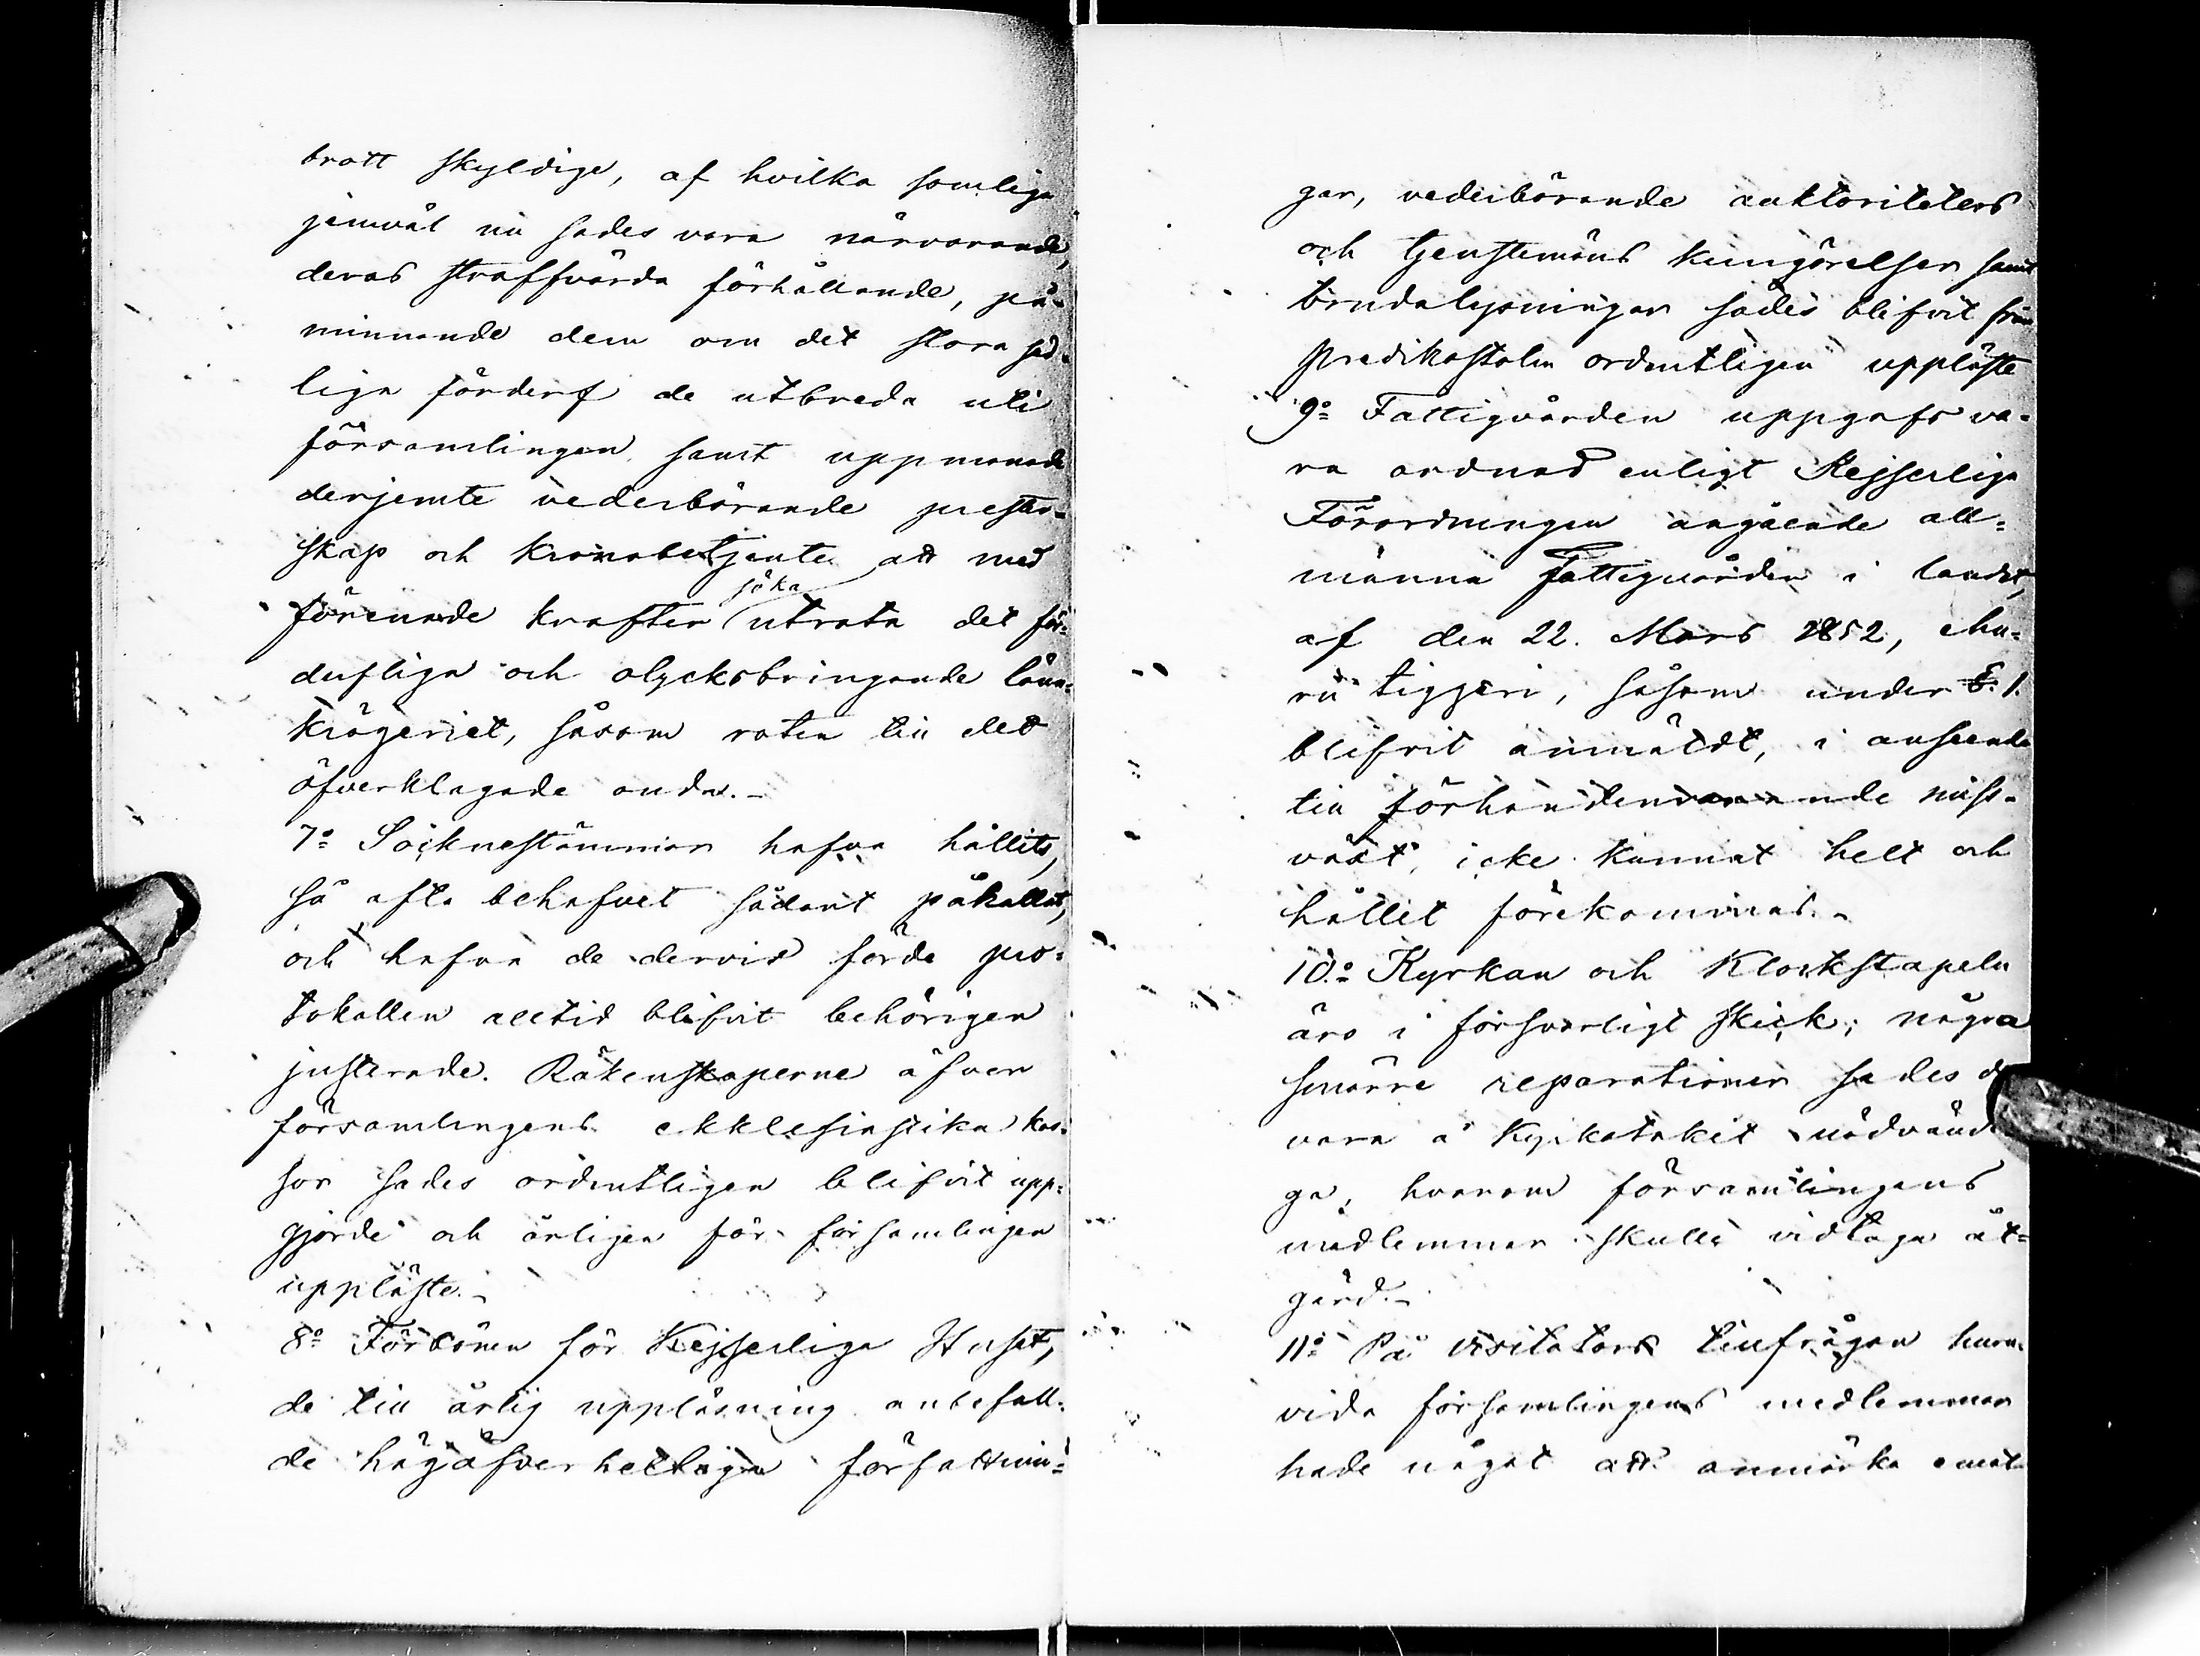 brott skyldige, af hvilka somliga
jemväl nu sades vara närvarande,
deras straffvärda förhållande, på-
minnande dem om det stora sed-
liga förderf de utbreda uti
församlingen samt uppmanade
derjemte vederbörande prester-
skap och kronobetjente att med
förenade krafter söka utrota det för-
derfliga och olycksbringande lönn-
krögeriet, såsom roten till det
öfverklagade onda.-
7:o Söcknestämmor hafva hållits,
så ofta behofvet sådant påkallat,
och hafva de dervid förda pro-
tokollen alltid blifvit behörigen
justerade. Räkenskaperne öfver
församlingens ekklesiastika kas-
sor sades ordentligen blifvit upp-
gjorde och årligen för församlingen
uppläste.-
8:o Förbönen för Kejserliga Huset,
de till årlig uppläsning anbefall-
de högöfverhetliga författnin-
gar, vederbörande auktoriteters
och tjenstemäns kungörelser samt
brudalysningar sades blifvit från
predikostolen ordentligen uppläste
9:o Fattigvården uppgafs va-
ra ordnad enligt Kejserliga
Förordningen angående all-
männa Fattigvården i landet,
af den 22. Mars 1852, ehu-
ru tiggeri, såsom under 6. 1.
blifvit anmäldt, i anseende
till förhandenvarande miss-
växt, icke kunnat helt och
hållet förekommas.-
10.o Kyrkan och Klockstapeln
äro i försvarligt skick; några
smärre reparationer sades
vara å Kyrkotaket nödvändi
ga, hvarom församlingens
medlemmar skulle vidtaga åt-
gärd.-
11:o På visitators tillfrågan huru-
vida församlingens medlemmar
hade något att anmärka emot